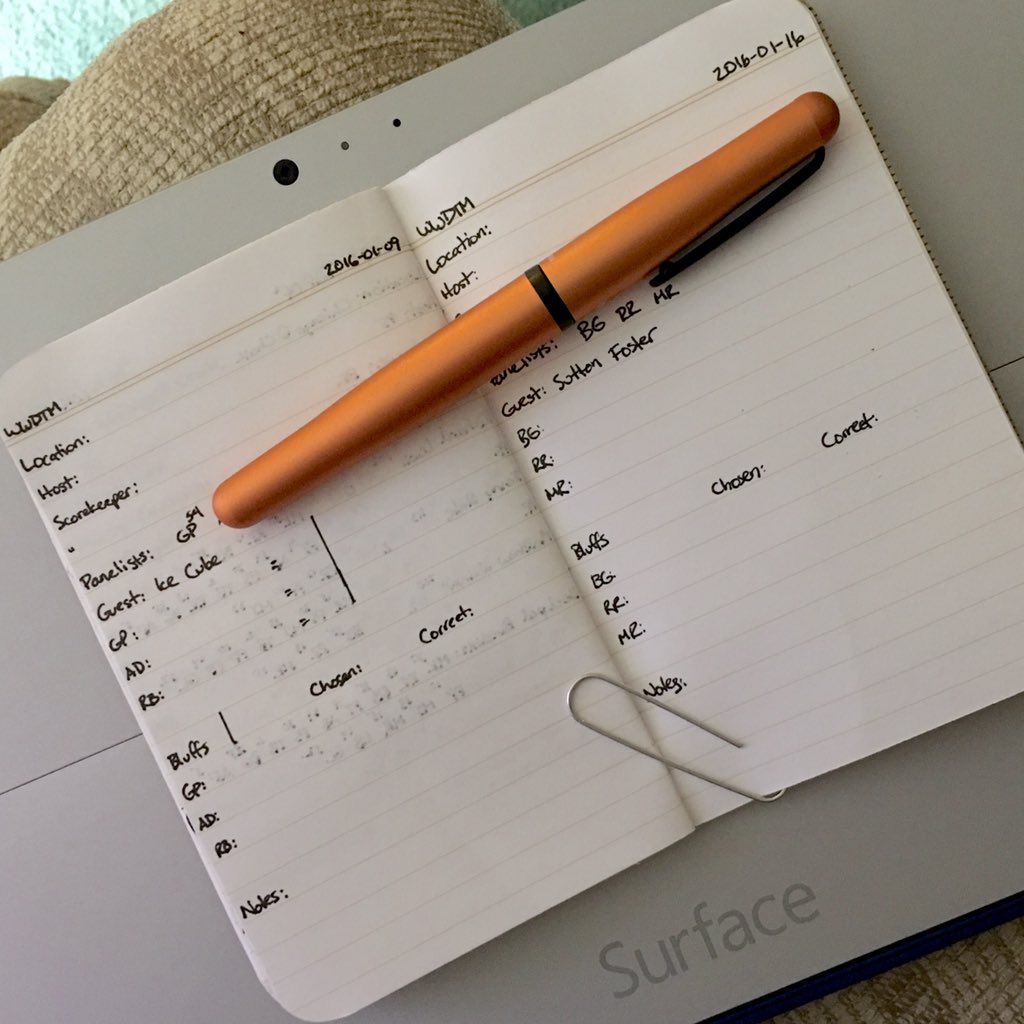 2016-01-09
WWDTM
Location:
Host:
Scorekeeper:
Panelists: GP
Guest: Ice Cube
GP:
AD:
RB:
Chosen: Correct:
Bluffs
GP:
AD:
RB:
Notes:
2016-01-16
WWDTM
Location:
Host:
Panelists: BG RR MR
Guest: Sutton Foster
BG:
RR:
MR:
Chosen: Correct:
Bluffs
BG:
RR:
MR:
Notes:
Surface